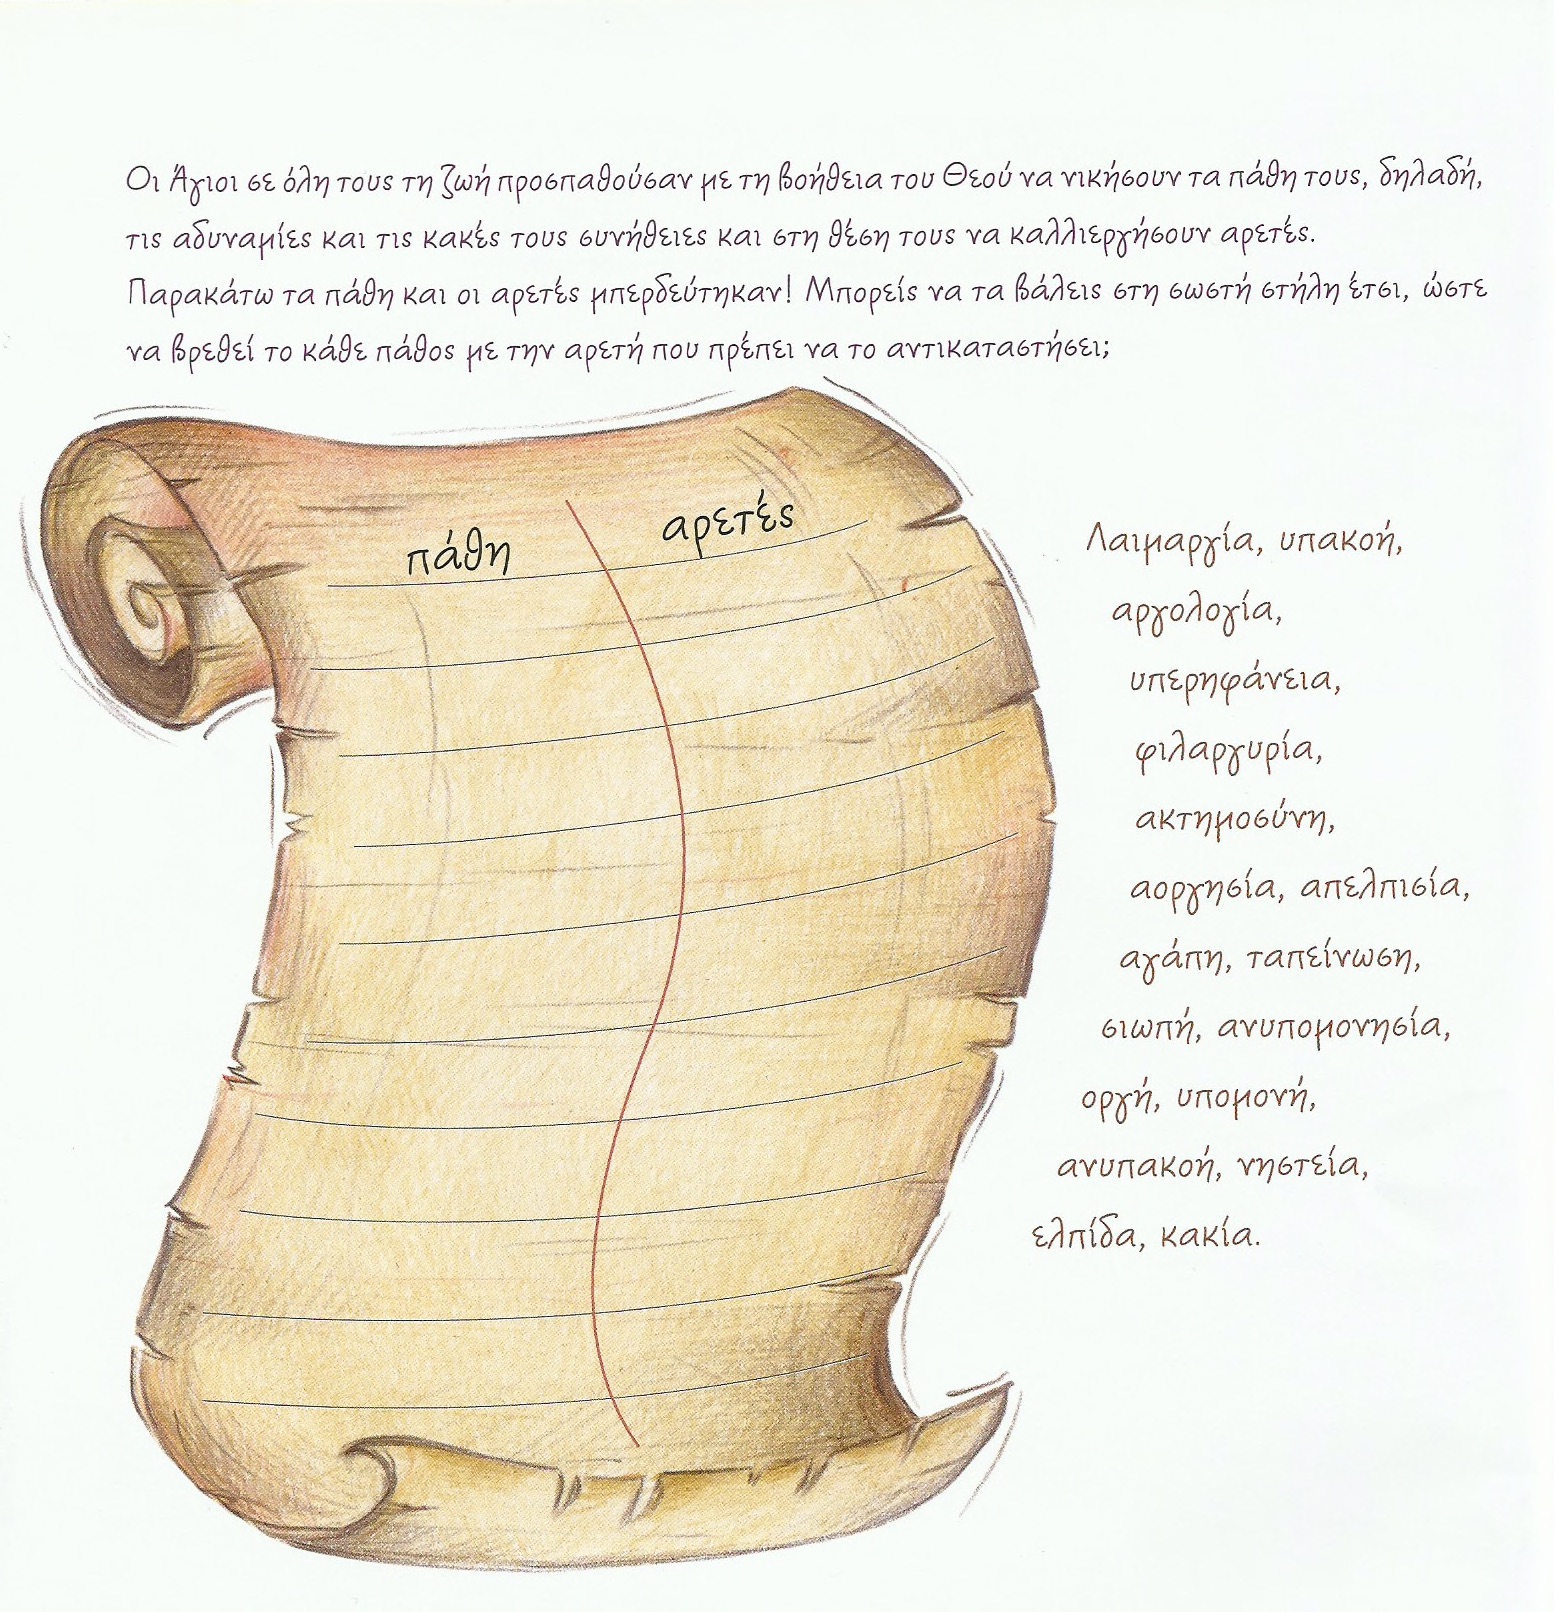 Οι Άγιοι σε όλη τους τη ζωή προσπαθούσαν με τη βοήθεια του Θεού να νικήσουν τα πάθη τους, δηλαδή,
τις αδυναμίες και τις κακές τους συνήθειες και στη θέση τους να καλλιεργήσουν αρετές.
Παρακάτω τα πάθη και οι αρετές μπερδεύτηκαν! Μπορείς να τα βάλεις στη σωστή στήλη έτσι, ώστε
να βρεθεί το κάθε πάθος με την αρετή που πρέπει να το αντικαταστήσει;
πάθη αρετές
Λαιμαργία, υπακοή,
αργολογία,
υπερηφάνεια,
φιλαργυρία,
ακτημοσύνη,
αοργησία, απελπισία,
αγάπη, ταπείνωση,
σιωπή, ανυπομονησία,
οργή, υπομονή,
ανυπακοή, νηστεία,
ελπίδα, κακία.